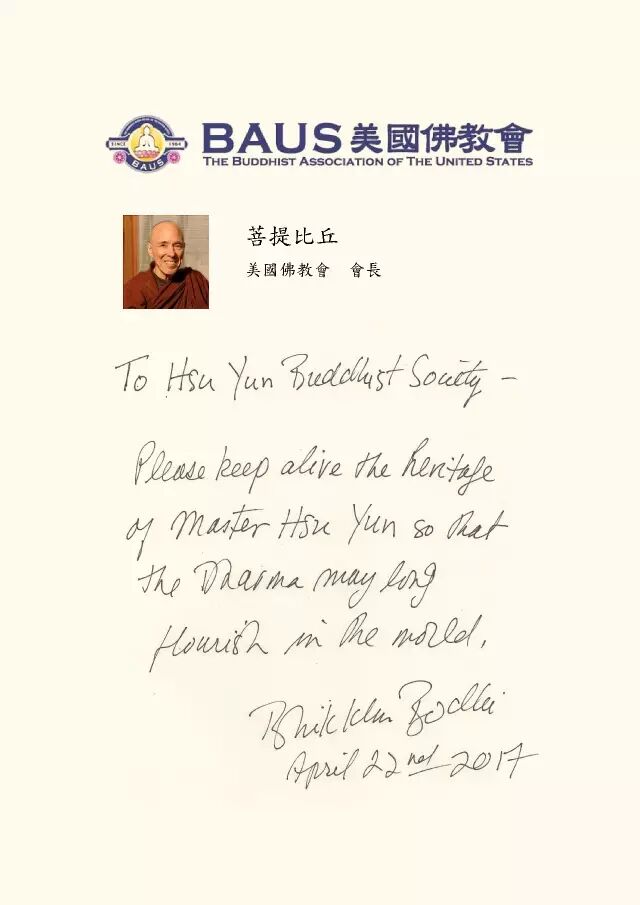 SINCE 1964
BAUS
BAUS 美國佛教會
THE BUDDHIST ASSOCIATION OF THE UNITED STATES
菩提比丘
美國佛教會 會長
To Hsu Yun Buddhist Society –
Please keep alive the heritage
of Master Hsu Yun so that
the Dharma may long
flourish in the world.
Bhikkhu Bodhi
April 22nd 2017